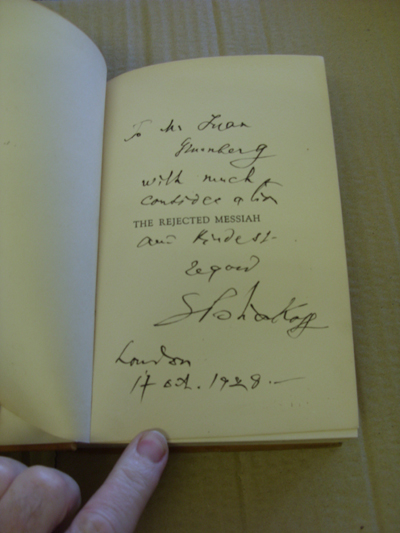 To Mr Ivan
Grünberg
with much
consideration
THE REJECTED MESSIAH
and Kindest
regard
London
17 oct. 1928.—